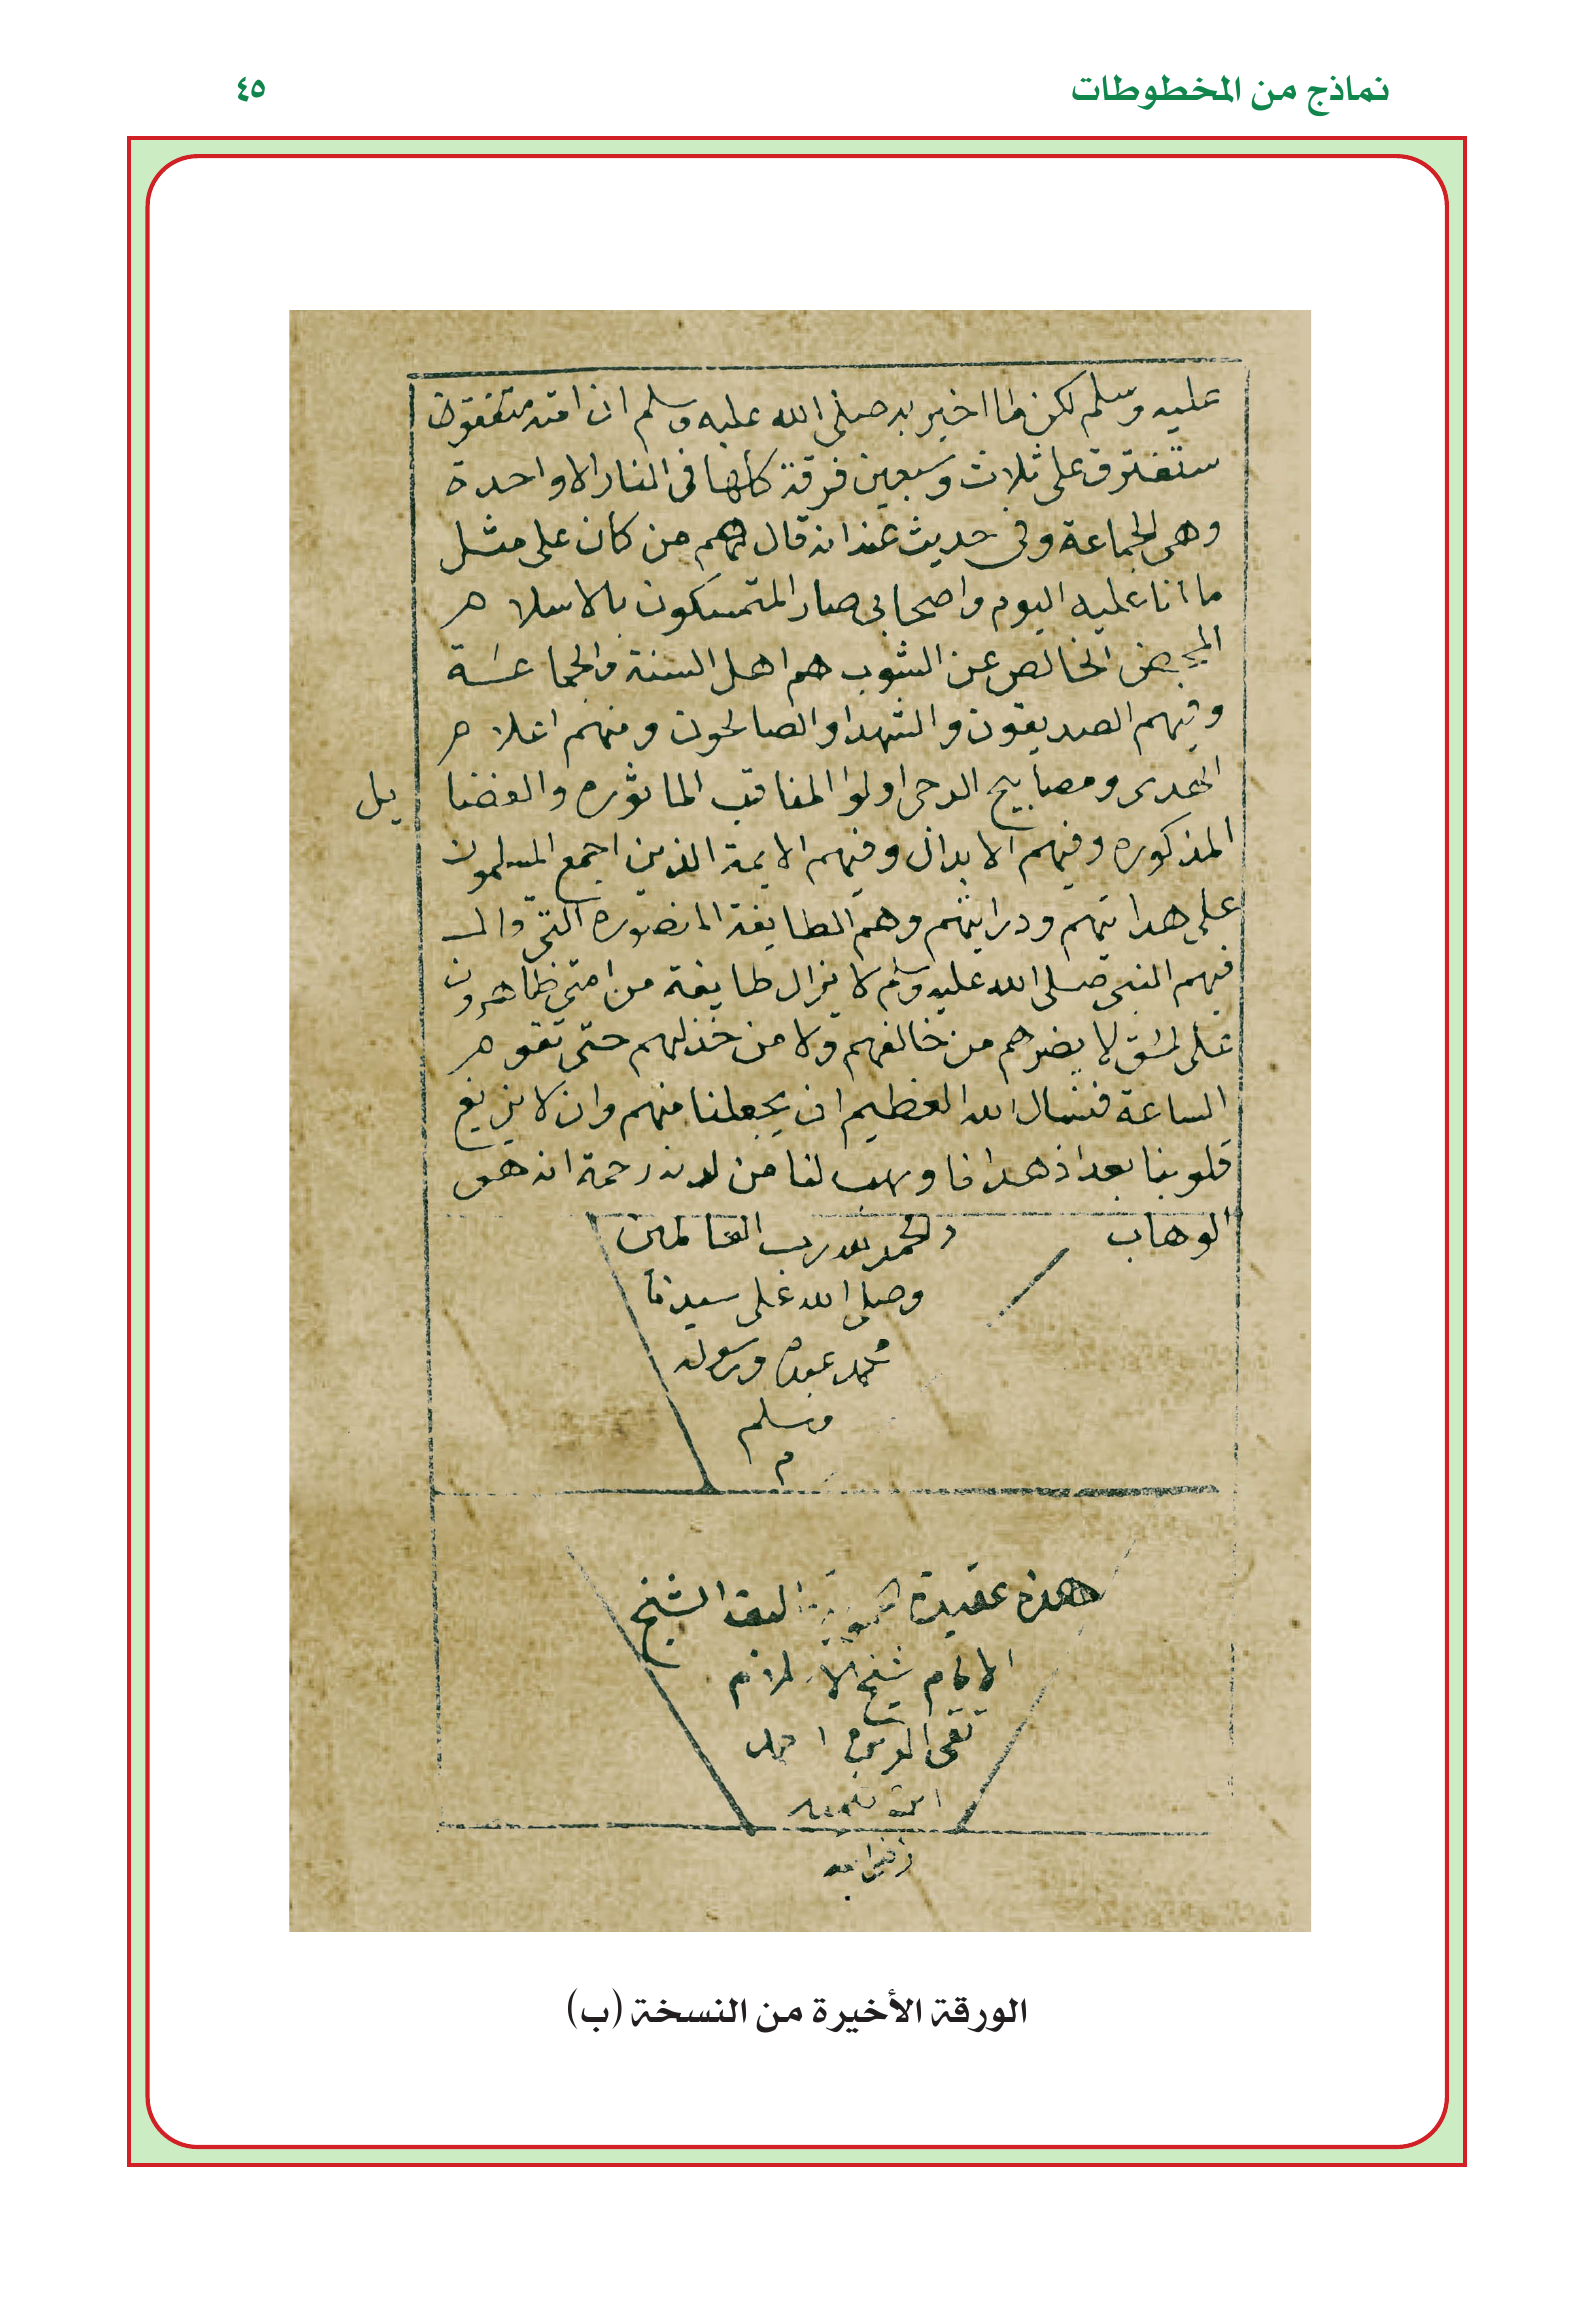 نماذج من المخطوطات
٤٥
عليه وسلم لكن لما اخبر به صلى الله عليه وسلم ان امته
ستفترق على ثلاث وسبعين فرقة كلها فى النار الا واحدة
وهى الجماعة وفى حديث عنه انه قال هم من كان على مثل
ما انا عليه اليوم واصحابى صار المتمسكون بالاسلا م
المحض الخالص عن الشوب هم اهل السنة والجما عة
وفيهم الصديقون والشهدا والصالحون ومنهم اعلا م
الهدى ومصابيح الدجى اولوا المناقب الماثوره والفضا يل
المذكوره وفيهم الابدال وفيهم الايمة الذين اجمع المسلمون
على هدايتهم ودرايتهم وهم الطايفة المنصوره التى قال
فيهم النبى صلى الله عليه وسلم لا يزال طايفة من امتى ظاهرون
على الحق لا يضرهم من خالفهم ولا من خذلهم حتى تقو م
الساعة فنسال الله العظيم ان يجعلنا منهم وان لا يزيغ
قلوبنا بعد اذ هدانا ويهب لنا من لدنه رحمة انه هو
الوهاب والحمد لله رب العالمين
وصلى الله على سيدنا
محمد عبده ورسوله
وسلم
م
هذه عقيدة الشيخ
الامام شيخ الاسلام
تقى الدين احمد
ابن تيميه
الورقة الأخيرة من النسخة (ب)